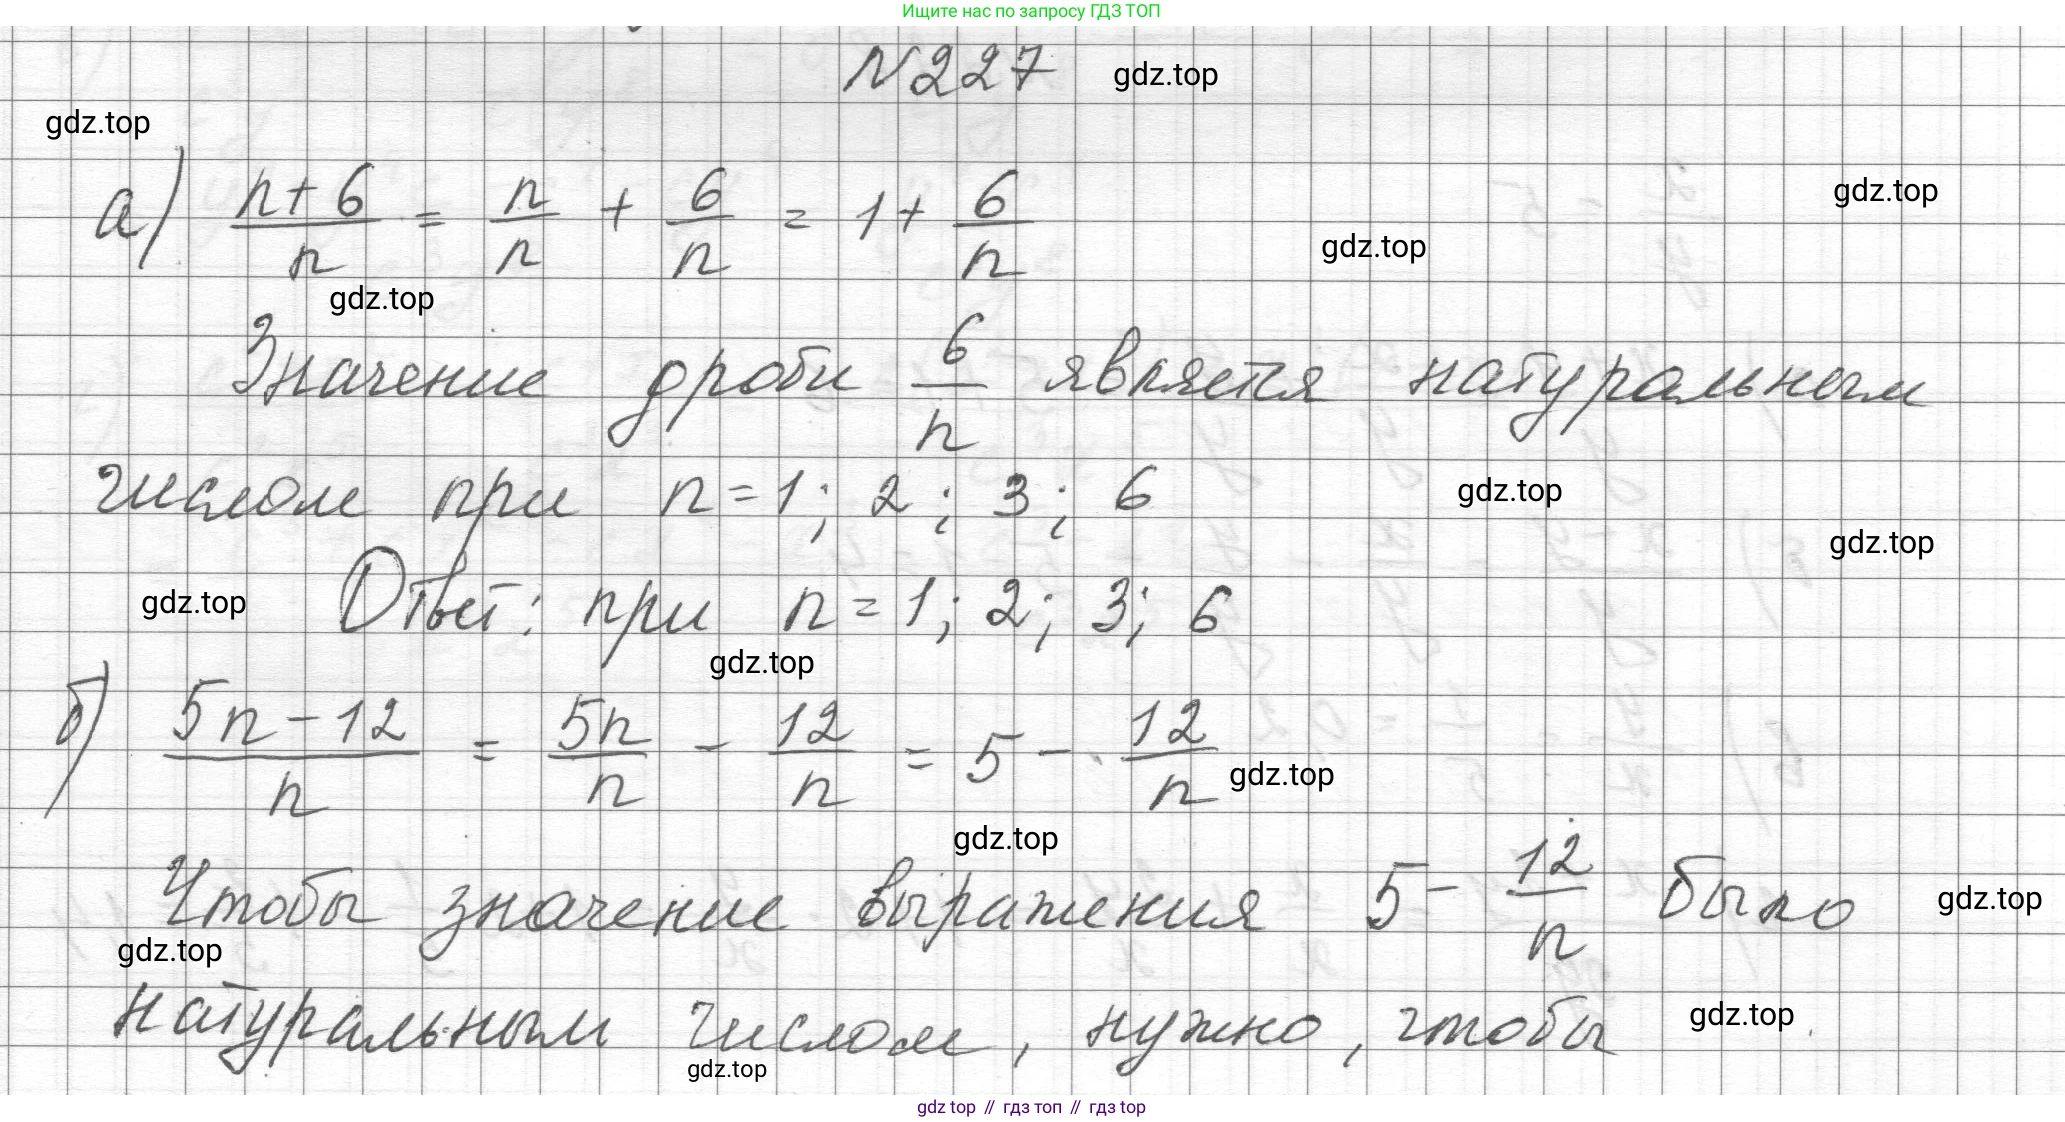 Ищите нас по запросу ГДЗ ТОП
N227 gdz.top
gdz.top
а) (n+6)/n = n/n + 6/n = 1+ 6/n
gdz.top
gdz.top
gdz.top
Значение дроби 6/n является натуральным
числом при n=1; 2; 3; 6 gdz.top
gdz.top
gdz.top Ответ: при n=1; 2; 3; 6
gdz.top
б) (5n-12)/n = 5n/n - 12/n = 5 - 12/n gdz.top
gdz.top
Чтобы значение выражения 5- 12/n было gdz.top
gdz.top
натуральным числом, нужно, чтобы gdz.top
gdz.top
gdz top // гдз топ // гдз top